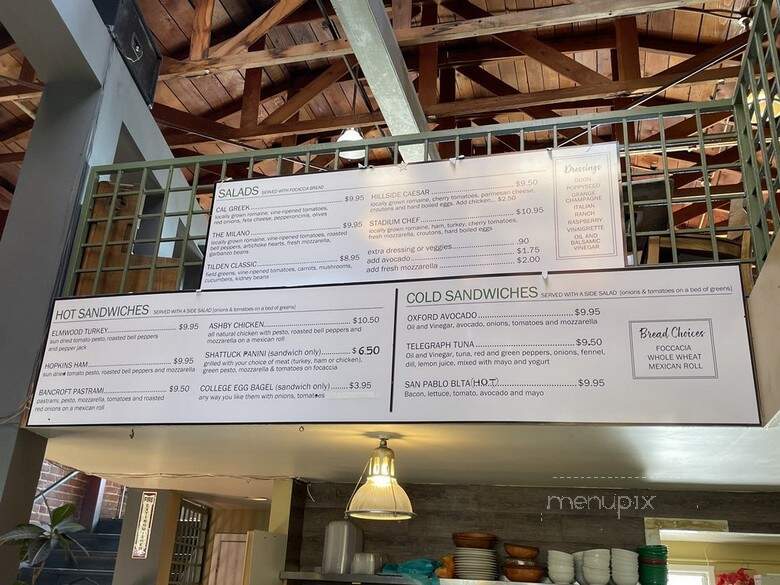 SALADS SERVED WITH FOCACCIA BREAD
CAL GREEK $9.95
locally grown romaine, vine-ripened tomatoes,
red onions, feta cheese, pepperoncinis, olives
THE MILANO $9.95
locally grown romaine, vine-ripened tomatoes, roasted
bell peppers, artichoke hearts, fresh mozzarella,
garbanzo beans
TILDEN CLASSIC $8.95
field greens, vine-ripened tomatoes, carrots, mushrooms,
cucumbers, kidney beans
HILLSIDE CAESAR $9.50
locally grown romaine, cherry tomatoes, parmesan cheese,
croutons and hard boiled eggs. Add chicken... $2.50
STADIUM CHEF $10.95
locally grown romaine, ham, turkey, cherry tomatoes,
fresh mozzarella, croutons, hard boiled eggs
extra dressing or veggies .90
add avocado $1.75
add fresh mozzarella $2.00
Dressings
DIJON
POPPYSEED
ORANGE
CHAMPAGNE
ITALIAN
RANCH
RASPBERRY
VINAIGRETTE
OIL AND
BALSAMIC
VINEGAR
HOT SANDWICHES SERVED WITH A SIDE SALAD (onions & tomatoes on a bed of greens)
ELMWOOD TURKEY $9.95
sun dried tomato pesto, roasted bell peppers
and pepper jack
HOPKINS HAM $9.95
sun dried tomato pesto, roasted bell peppers and mozzarella
BANCROFT PASTRAMI $9.50
pastrami, pesto, mozzarella, tomatoes and roasted
red onions on a mexican roll
ASHBY CHICKEN $10.50
all natural chicken with pesto, roasted bell peppers and
mozzarella on a mexican roll
SHATTUCK PANINI (sandwich only) $6.50
grilled with your choice of meat (turkey, ham or chicken),
green pesto, mozzarella & tomatoes on focaccia
COLLEGE EGG BAGEL (sandwich only) $3.95
any way you like them with onions, tomatoes
COLD SANDWICHES SERVED WITH A SIDE SALAD (onions & tomatoes on a bed of greens)
OXFORD AVOCADO $9.95
Oil and Vinegar, avocado, onions, tomatoes and mozzarella
TELEGRAPH TUNA $9.50
Oil and Vinegar, tuna, red and green peppers, onions, fennel,
dill, lemon juice, mixed with mayo and yogurt
SAN PABLO BLTA (HOT) $9.95
Bacon, lettuce, tomato, avocado and mayo
Bread Choices
FOCCACIA
WHOLE WHEAT
MEXICAN ROLL
FIRE
EXTINGUISHER
menupix